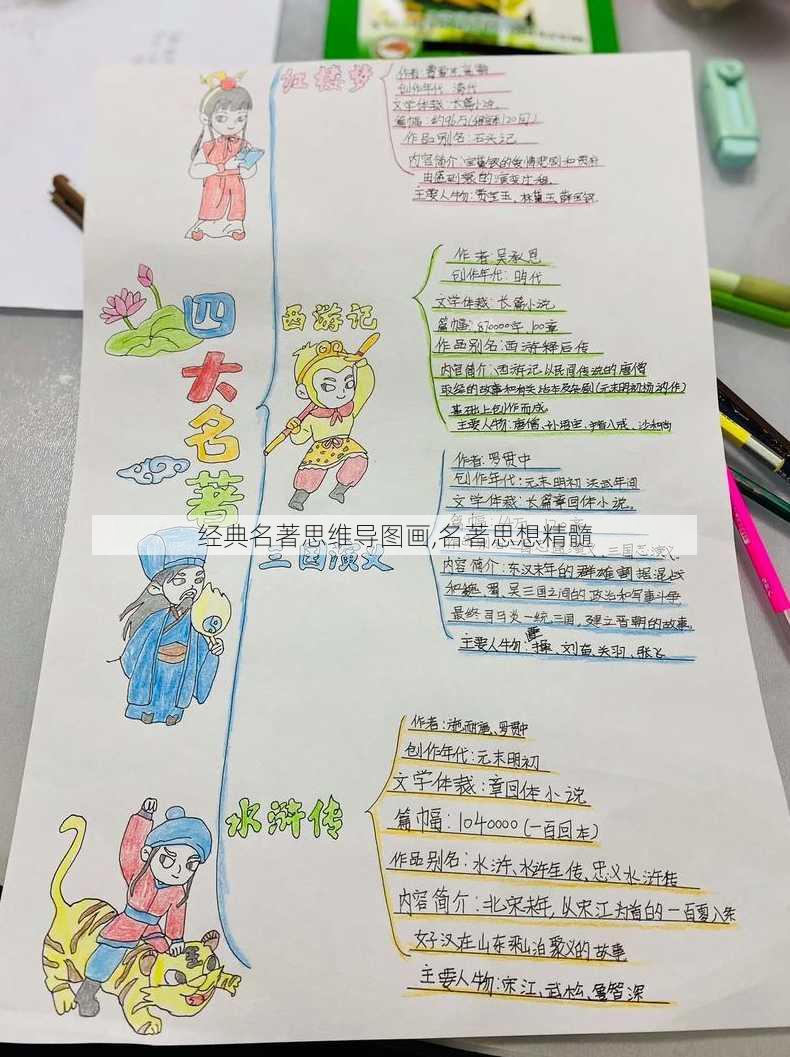 四大名著
红楼梦
作者:曹雪芹、高鹗
创作年代 清代
文学体裁 长篇小说
篇幅:约96万(120回)
作品别名:石头记
内容简介:宝黛钗的爱情悲剧和贾府
由盛到衰的演变
主要人物:贾宝玉、林黛玉、薛宝钗.
西游记
作者:吴承恩
创作年代:明代
文学体裁:长篇小说
篇幅:870000字 100章
作品别名:西游释厄传
内容简介:西游记以民间传说的唐僧
取经的故事和有关话本及杂剧(元末明初场的作)
基础上创作而成.
主要人物:唐僧、孙悟空、猪八戒、沙和尚
三国演义
作者:罗贯中
创作年代:元末明初 洪武年间
文学体裁:长篇章回体小说.
经典名著思维导图画,名著思想精髓
三国志演义.
内容简介:东汉末年的群雄割据混战
和魏、蜀、吴三国之间的政治和军事斗争,
最终司马炎一统三国,建立晋朝的故事.
主要人物:曹操、刘备、关羽、张飞
水浒传
作者:施耐庵、罗贯中
创作年代:元末明初
文学体裁:章回体小说
篇幅:1040000(一百回本)
作品别名:水浒、水浒全传、忠义水浒传
内容简介:北宋末年,以宋江为首的一百零八条
好汉在山东梁山泊聚义的故事
主要人物:宋江、武松、鲁智深